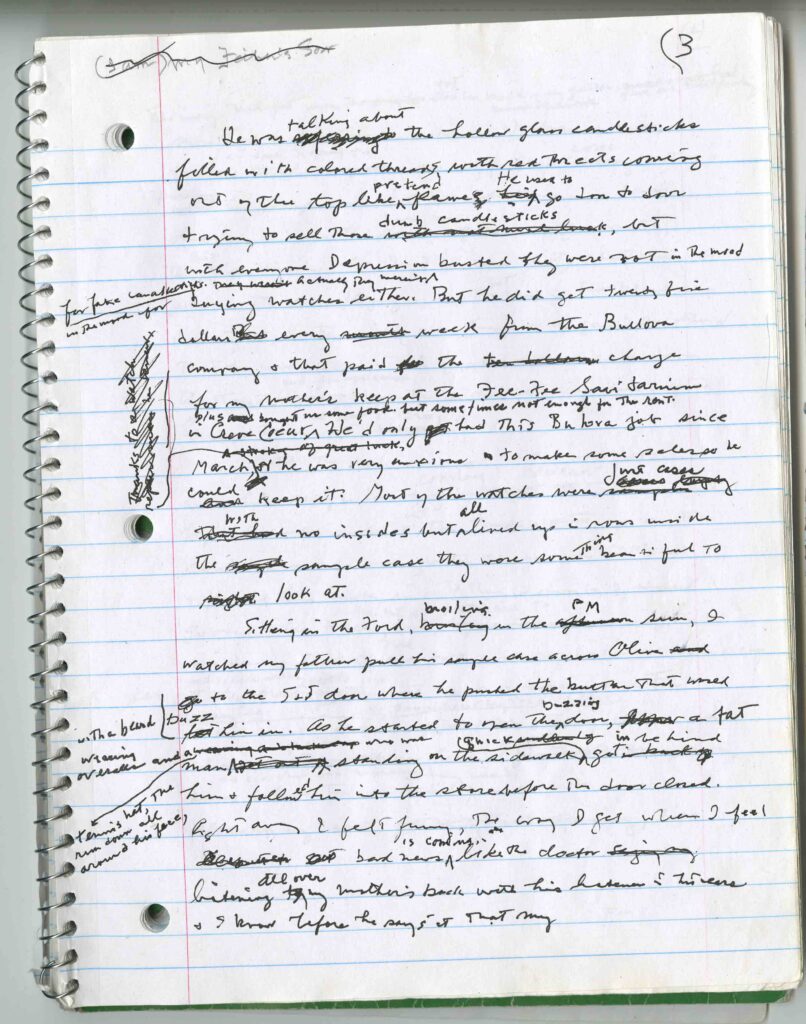 (3
talking about
He was the hollow glass candlesticks
filled with colored threads, with red threads coming
pretend He used to
out of the top like flames, go door to door
dumb candlesticks
trying to sell those with not much luck, but
with everyone Depression busted they were not in the mood
for fake candlesticks. Actually they weren't
in the mood for
buying watches either. But he did get twenty five
dollars every month week from the Bullova
company & that paid the ten dollars charge
for my mother's keep at the Fee-Fee Sanitarium
plus bought us some food but sometimes not enough for the rent.
in Creve Coeur. We'd only had this Bulova job since
A stroke of good luck,
March & he was very anxious to make some sales so he
just cases
could keep it. Most of the watches were
with all
that had no insides but lined up in rows inside
the sample case they were something beautiful to
look at.
broiling PM
Sitting in the Ford, in the afternoon sun, I
watched my father pull his sample case across Olive and
go to the S&J door where he pushed the button that would
buzz buzzing
let him in. As he started to open the door, a fat
with a beard
wearing
overalls and a
man standing on the sidewalk quick got in behind
tennis hat, the
rim down all
around his face,
him & followed him into the store before the door closed.
Right away I felt funny, the way I get when I feel
is coming
bad news like the doctor saying
all over
listening to my mother's back with his listener in his ears
& I know before he says it that my